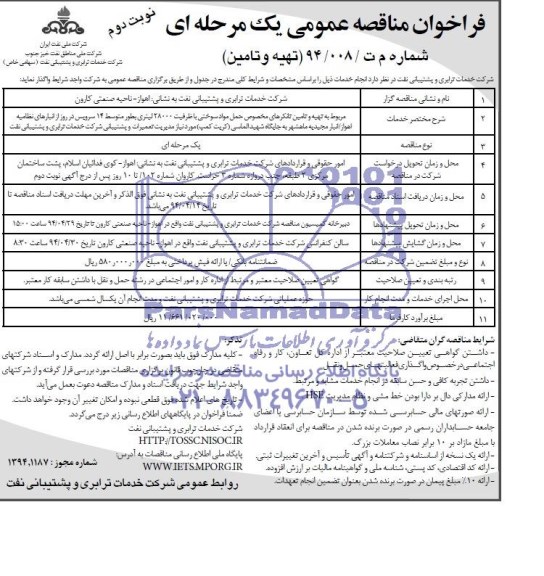 نوبت دوم
فراخوان مناقصه عمومی یک مرحله ای
شماره م ت / ۹۴/۰۰۸ (تهیه و تامین)
شرکت ملی نفت ایران
شرکت ملی مناطق نفت خیز جنوب
شرکت خدمات ترابری و پشتیبانی نفت (سهامی خاص)
شرکت خدمات ترابری و پشتیبانی نفت در نظر دارد انجام خدمات ذیل را بر اساس مشخصات و شرایط کلی مندرج در جدول و از طریق برگزاری مناقصه عمومی به شرکت واجد شرایط واگذار نماید:
۱ نام و نشانی مناقصه گزار شرکت خدمات ترابری و پشتیبانی نفت به نشانی: اهواز- ناحیه صنعتی کارون
۲ شرح مختصر خدمات مربوط به تهیه و تامین تانکرهای مخصوص حمل مواد سوختی با ظرفیت ۲۸۰۰۰ لیتری بطور متوسط ۱۴ سرویس در روز از انبارهای نظامیه
اهواز/انبار مجیدیه ماهشهر به جایگاه شهید الماسی (کریت کمپ) مورد نیاز مدیریت تعمیرات و پشتیبانی شرکت خدمات ترابری و پشتیبانی نفت
۳ نوع مناقصه یک مرحله ای
۴ محل و زمان تحویل درخواست شرکت در مناقصه امور حقوقی و قراردادهای شرکت خدمات ترابری و پشتیبانی نفت به نشانی: اهواز- کوی فدائیان اسلام، پشت ساختمان
مرکزی ۲ طبقه، جنب دروازه شماره ۳ حراست کاروان شماره ۱۰۲ تا ۱۰ روز پس از درج آگهی نوبت دوم
۵ محل و زمان دریافت اسناد مناقصه امور حقوقی و قراردادهای شرکت خدمات ترابری و پشتیبانی نفت به نشانی فوق الذکر و آخرین مهلت دریافت اسناد مناقصه تا
تاریخ ۹۴/۰۴/۱۴ می‌باشد.
۶ محل و زمان تحویل پیشنهادها دبیرخانه کمیسیون مناقصه شرکت خدمات ترابری و پشتیبانی نفت واقع در اهواز- ناحیه صنعتی کارون تا تاریخ ۹۴/۰۴/۲۹ ساعت ۱۵:۰۰
۷ محل و زمان گشایش پیشنهادها سالن کنفرانس شرکت خدمات ترابری و پشتیبانی نفت واقع در اهواز- ناحیه صنعتی کارون تاریخ ۹۴/۰۴/۳۰ ساعت ۸:۳۰
۸ نوع و مبلغ تضمین شرکت در مناقصه ضمانتنامه بانکی/ یا ارائه فیش پرداختی به مبلغ ۵۸۰,۰۰۰,۰۰۰ ریال
۹ رتبه بندی و تعیین صلاحیت گواهی تعیین صلاحیت معتبر و مرتبط از اداره کار و امور اجتماعی در رشته حمل و نقل با داشتن سابقه کار معتبر.
۱۰ محل اجرای خدمات و مدت انجام کار حوزه عملیاتی شرکت خدمات ترابری و پشتیبانی نفت و مدت انجام آن یکسال شمسی می‌باشد.
۱۱ مبلغ برآورد کارفرما ریال
شرایط مناقصه گران متقاضی:
- داشتن گواهی تعیین صلاحیت معتبر از اداره کل تعاون، کار و رفاه
اجتماعی در خصوص واگذاری فعالیت
- داشتن تجربه کافی و حسن سابقه در انجام خدمات مشابه و مرتبط.
- ارائه مدارکی دال بر دارا بودن خط مشی و نظام مدیریت HSE
- ارائه صورتهای مالی حسابرسی شده توسط سازمان حسابرسی یا اعضای
جامعه حسابداران رسمی در صورت برنده شدن در مناقصه برای انعقاد قرارداد
با مبلغ مازاد بر ۱۰ برابر نصاب معاملات بزرگ.
- ارائه یک نسخه از اساسنامه و شرکتنامه و آگهی تأسیس و آخرین تغییرات ثبتی.
- ارائه کد اقتصادی، کد پستی، شناسه ملی و گواهینامه مالیات بر ارزش افزوده.
- ارائه ۱۰٪ مبلغ پیمان در صورت برنده شدن بعنوان تضمین انجام تعهدات.
تذکر:
- کلیه مدارک فوق باید بصورت برابر با اصل ارائه گردد. مدارک و اسناد شرکتهای
متقاضی در چارچوب قانون برگزاری مناقصات مورد بررسی قرار گرفته و از شرکتهای
واجد شرایط جهت دریافت اسناد و مدارک مناقصه دعوت بعمل می‌آید.
- تاریخ های اعلام شده فوق قطعی نبوده و امکان تغییر آن وجود خواهد داشت.
ضمنا فراخوان در پایگاههای اطلاع رسانی زیر درج می‌گردد.
شرکت خدمات ترابری و پشتیبانی نفت
HTTP://TOSSC.NISOC.IR
پایگاه ملی اطلاع رسانی مناقصات به آدرس:
WWW.IETS.MPORG.IR
شماره مجوز: ۱۳۹۴.۱۱۸۷
روابط عمومی شرکت خدمات ترابری و پشتیبانی نفت
ParsNamadData
مرکز فرآوری اطلاعات پارس نماد داده ها
پایگاه اطلاع رسانی مناقصات
۰۲۱-۸۸۳۴۹۶۷۰-۵